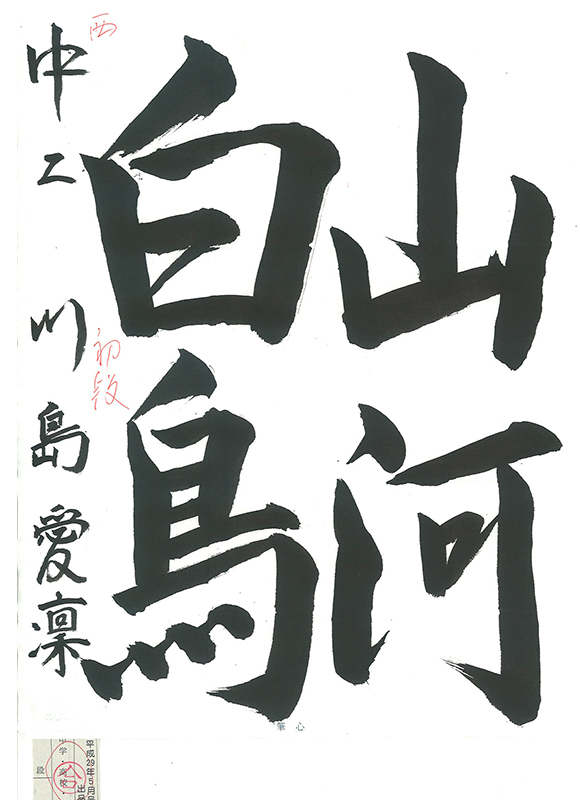 山河
白鳥
西
中二 川島愛凛
初段
筆心
平成29年5月号
出品
中学・高校
段
合